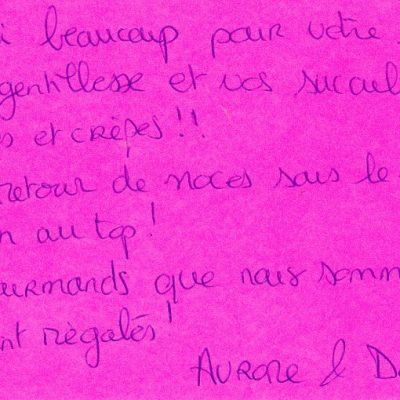 i beaucoup pour votre
gentillesse et vos succul
s et crêpes !!
retour de noces sous le
n au top !
ourmands que nous somm
nt régalés !
Aurore & D